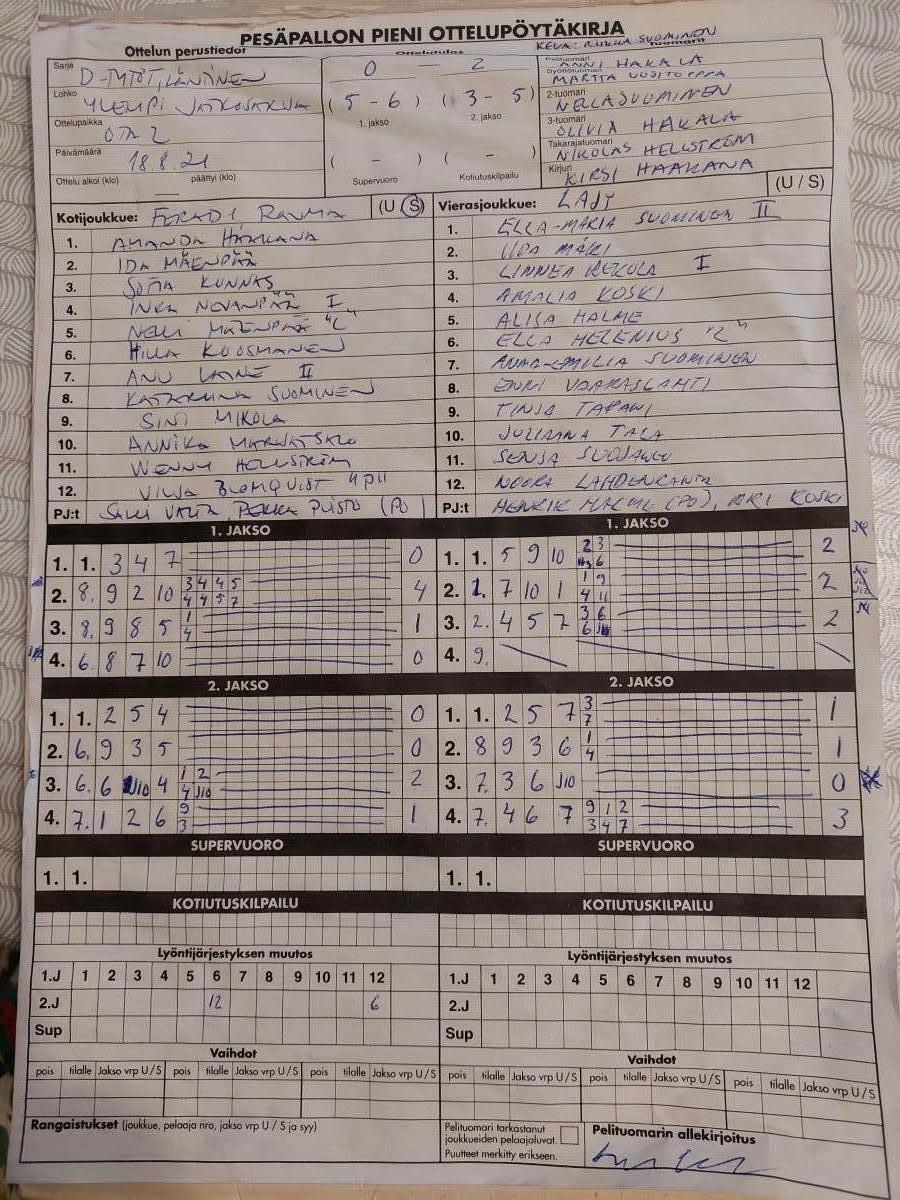 PESÄPALLON PIENI OTTELUPÖYTÄKIRJA
Ottelun perustiedot
Ottelutulos
KEVA: RIIKKA SUOMINEN
Tuomarit
Sarja D-TYTÖT, LÄNTINEN
0 — 2
Pelituomari ANNI HAKALA
Syöttötuomari MARTTA UUSITORPPA
Lohko YLEMPI JATKOSARJA
(5 - 6) (3 - 5)
2-tuomari NELLA SUOMINEN
1. jakso 2. jakso
3-tuomari OLIVIA HAKALA
Ottelupaikka OTA 2
Takarajatuomari NIKOLAS HELLSTRÖM
Päivämäärä 18.8.21
( - ) ( - )
Kirjuri KIRSI HAAKANA
Ottelu alkoi (klo) päättyi (klo)
Supervuoro Kotiutuskilpailu
Kotijoukkue: FERADI RAUMA (U S)
Vierasjoukkue: LAJY (U / S)
1. AMANDA HAAKANA
2. IDA MÄENPÄÄ
3. SOFIA KUNNAS
4. INKA NEVANPÄÄ I
5. NELLI MÄENPÄÄ "L"
6. HILLA KUOSMANEN
7. ANU LAINE II
8. KATARIINA SUOMINEN
9. SINI MIKOLA
10. ANNIKA
11. WENNY HELLSTRÖM
12. VILJA BLOMQVIST
PJ:t VALTA PEKKA PUISTO (PO)
1. ELLA-MARIA SUOMINEN II
2. IIDA MÄKI
3. LINNEA REKOLA I
4. AMALIA KOSKI
5. ALISA HALME
6. ELLA HELENIUS "L"
7. ANNA-EMILIA SUOMINEN
8. ENNI VARRASLAHTI
9. TINJA TAPANI
10. JULIAANA TALA
11. SENJA
12. NOORA LAHDENRANTA
PJ:t HENRIK (PO), KOSKI
1. JAKSO
1. 1. 3 4 7 0
2. 8. 9 2 10 3 4 4 5 4
4 4 5 7
3. 8. 9 8 5 1 1
4
4. 6. 8 7 10 0
1. JAKSO
1. 1. 5 9 10 2 3 2
6
2. 1. 7 10 1 1 9 2
4 11
3. 2. 4 5 7 3 6 2
6
4. 9.
2. JAKSO
1. 1. 2 5 4 0
2. 6. 9 3 5 0
3. 6. 6 J10 4 1 2 2
4 J10
4. 7. 1 2 6 9 1
3
2. JAKSO
1. 1. 2 5 7 3 1
7
2. 8 9 3 6 1 1
4
3. 7. 3 6 J10 0
4. 7. 4 6 7 9 1 2 3
3 4 7
SUPERVUORO
1. 1.
SUPERVUORO
1. 1.
KOTIUTUSKILPAILU
KOTIUTUSKILPAILU
Lyöntijärjestyksen muutos
1.J 1 2 3 4 5 6 7 8 9 10 11 12
2.J 12 6
Sup
Lyöntijärjestyksen muutos
1.J 1 2 3 4 5 6 7 8 9 10 11 12
2.J
Sup
Vaihdot
pois tilalle Jakso vrp U / S pois tilalle Jakso vrp U / S pois tilalle Jakso vrp U / S
Vaihdot
pois tilalle Jakso vrp U / S pois tilalle Jakso vrp U / S pois tilalle Jakso vrp U / S
Rangaistukset (joukkue, pelaaja nro, jakso vrp U / S ja syy)
Pelituomari tarkastanut
joukkueiden pelaajaluvat.
Puutteet merkitty erikseen.
Pelituomarin allekirjoitus